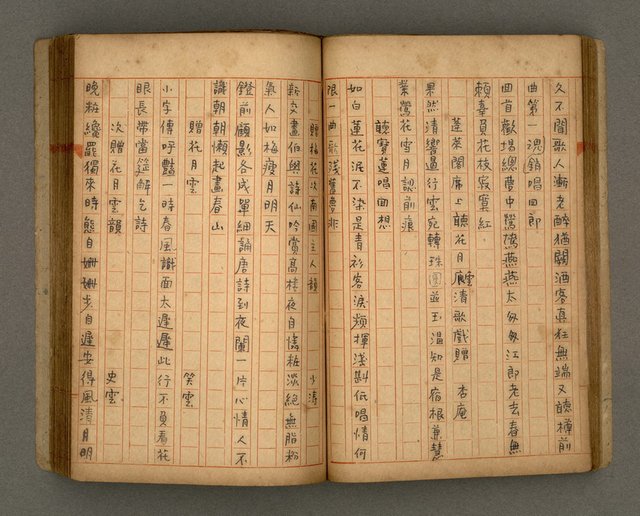 久不聞歌人漸老醉猶關酒客真狂無端又聽樽前
曲第一魂銷唱四郎
回首歡場總費中鶯鶯燕燕太匆匆江郎老去春無
賴辜負花枝寂寞紅
蓬萊閣席上聽花月雲廊清歌戲贈 杏庵
果然清響遏行雲宛轉珠圓並玉溫知是宿根兼慧
業鶯花雪月認前痕
聽寶蓮唱曲想
如白蓮花泥不染是青衫客淚頻揮淺斟低唱情何
限一曲歌淺舊夢非
贈梅花次南國主人韻 少濤
新交畫伯與詩仙吟賞高樓夜自憐粧淡絕無脂粉
氣人如梅瘦月明天
鐙前顧影各成單細論唐詩到夜闌一片心情人不
識朝朝懶起畫春山
贈花月雲 笑雲
小字傳呼豔一時春風識面太遲遲此行不負看花
眼長帶當筵解乞詩
次贈花月雲韻 史雲
晚粧纔罷獨來時態自姍姍步自遲安得風清月明